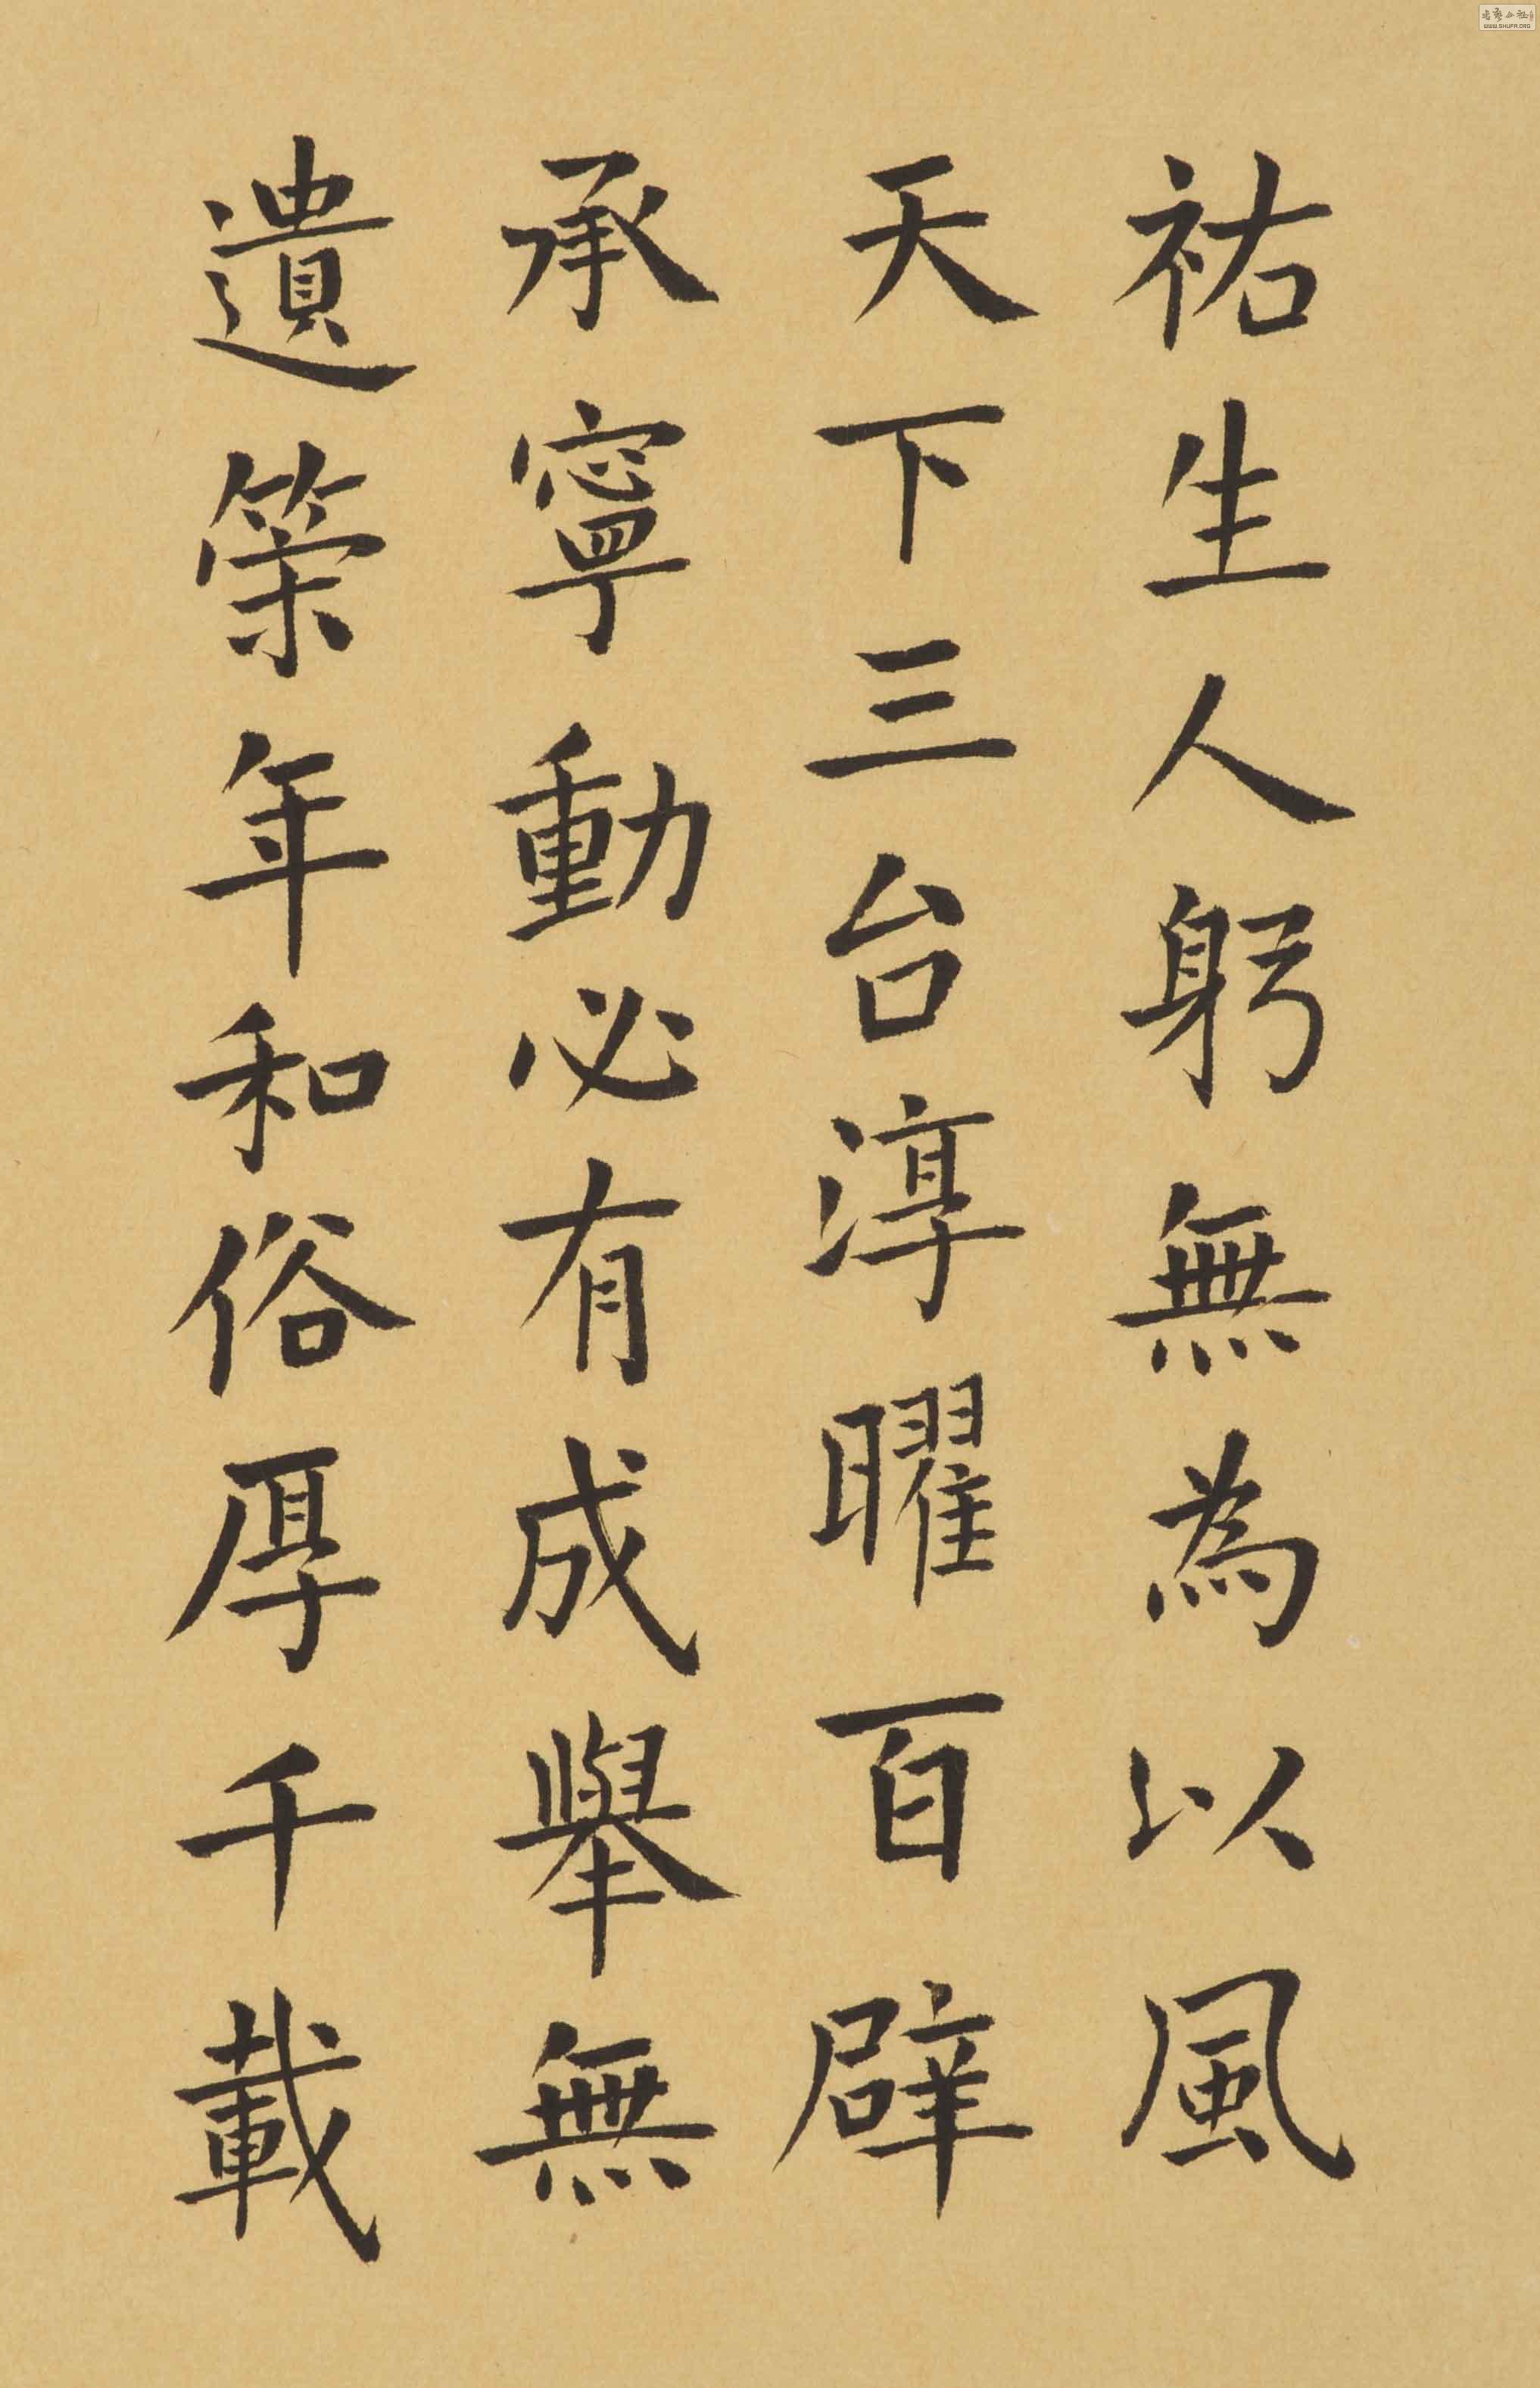 祐生人躬無為以風
天下三台淳曜百辟
承寧動必有成舉無
遺策年和俗厚千載
WWW.SHUFA.ORG